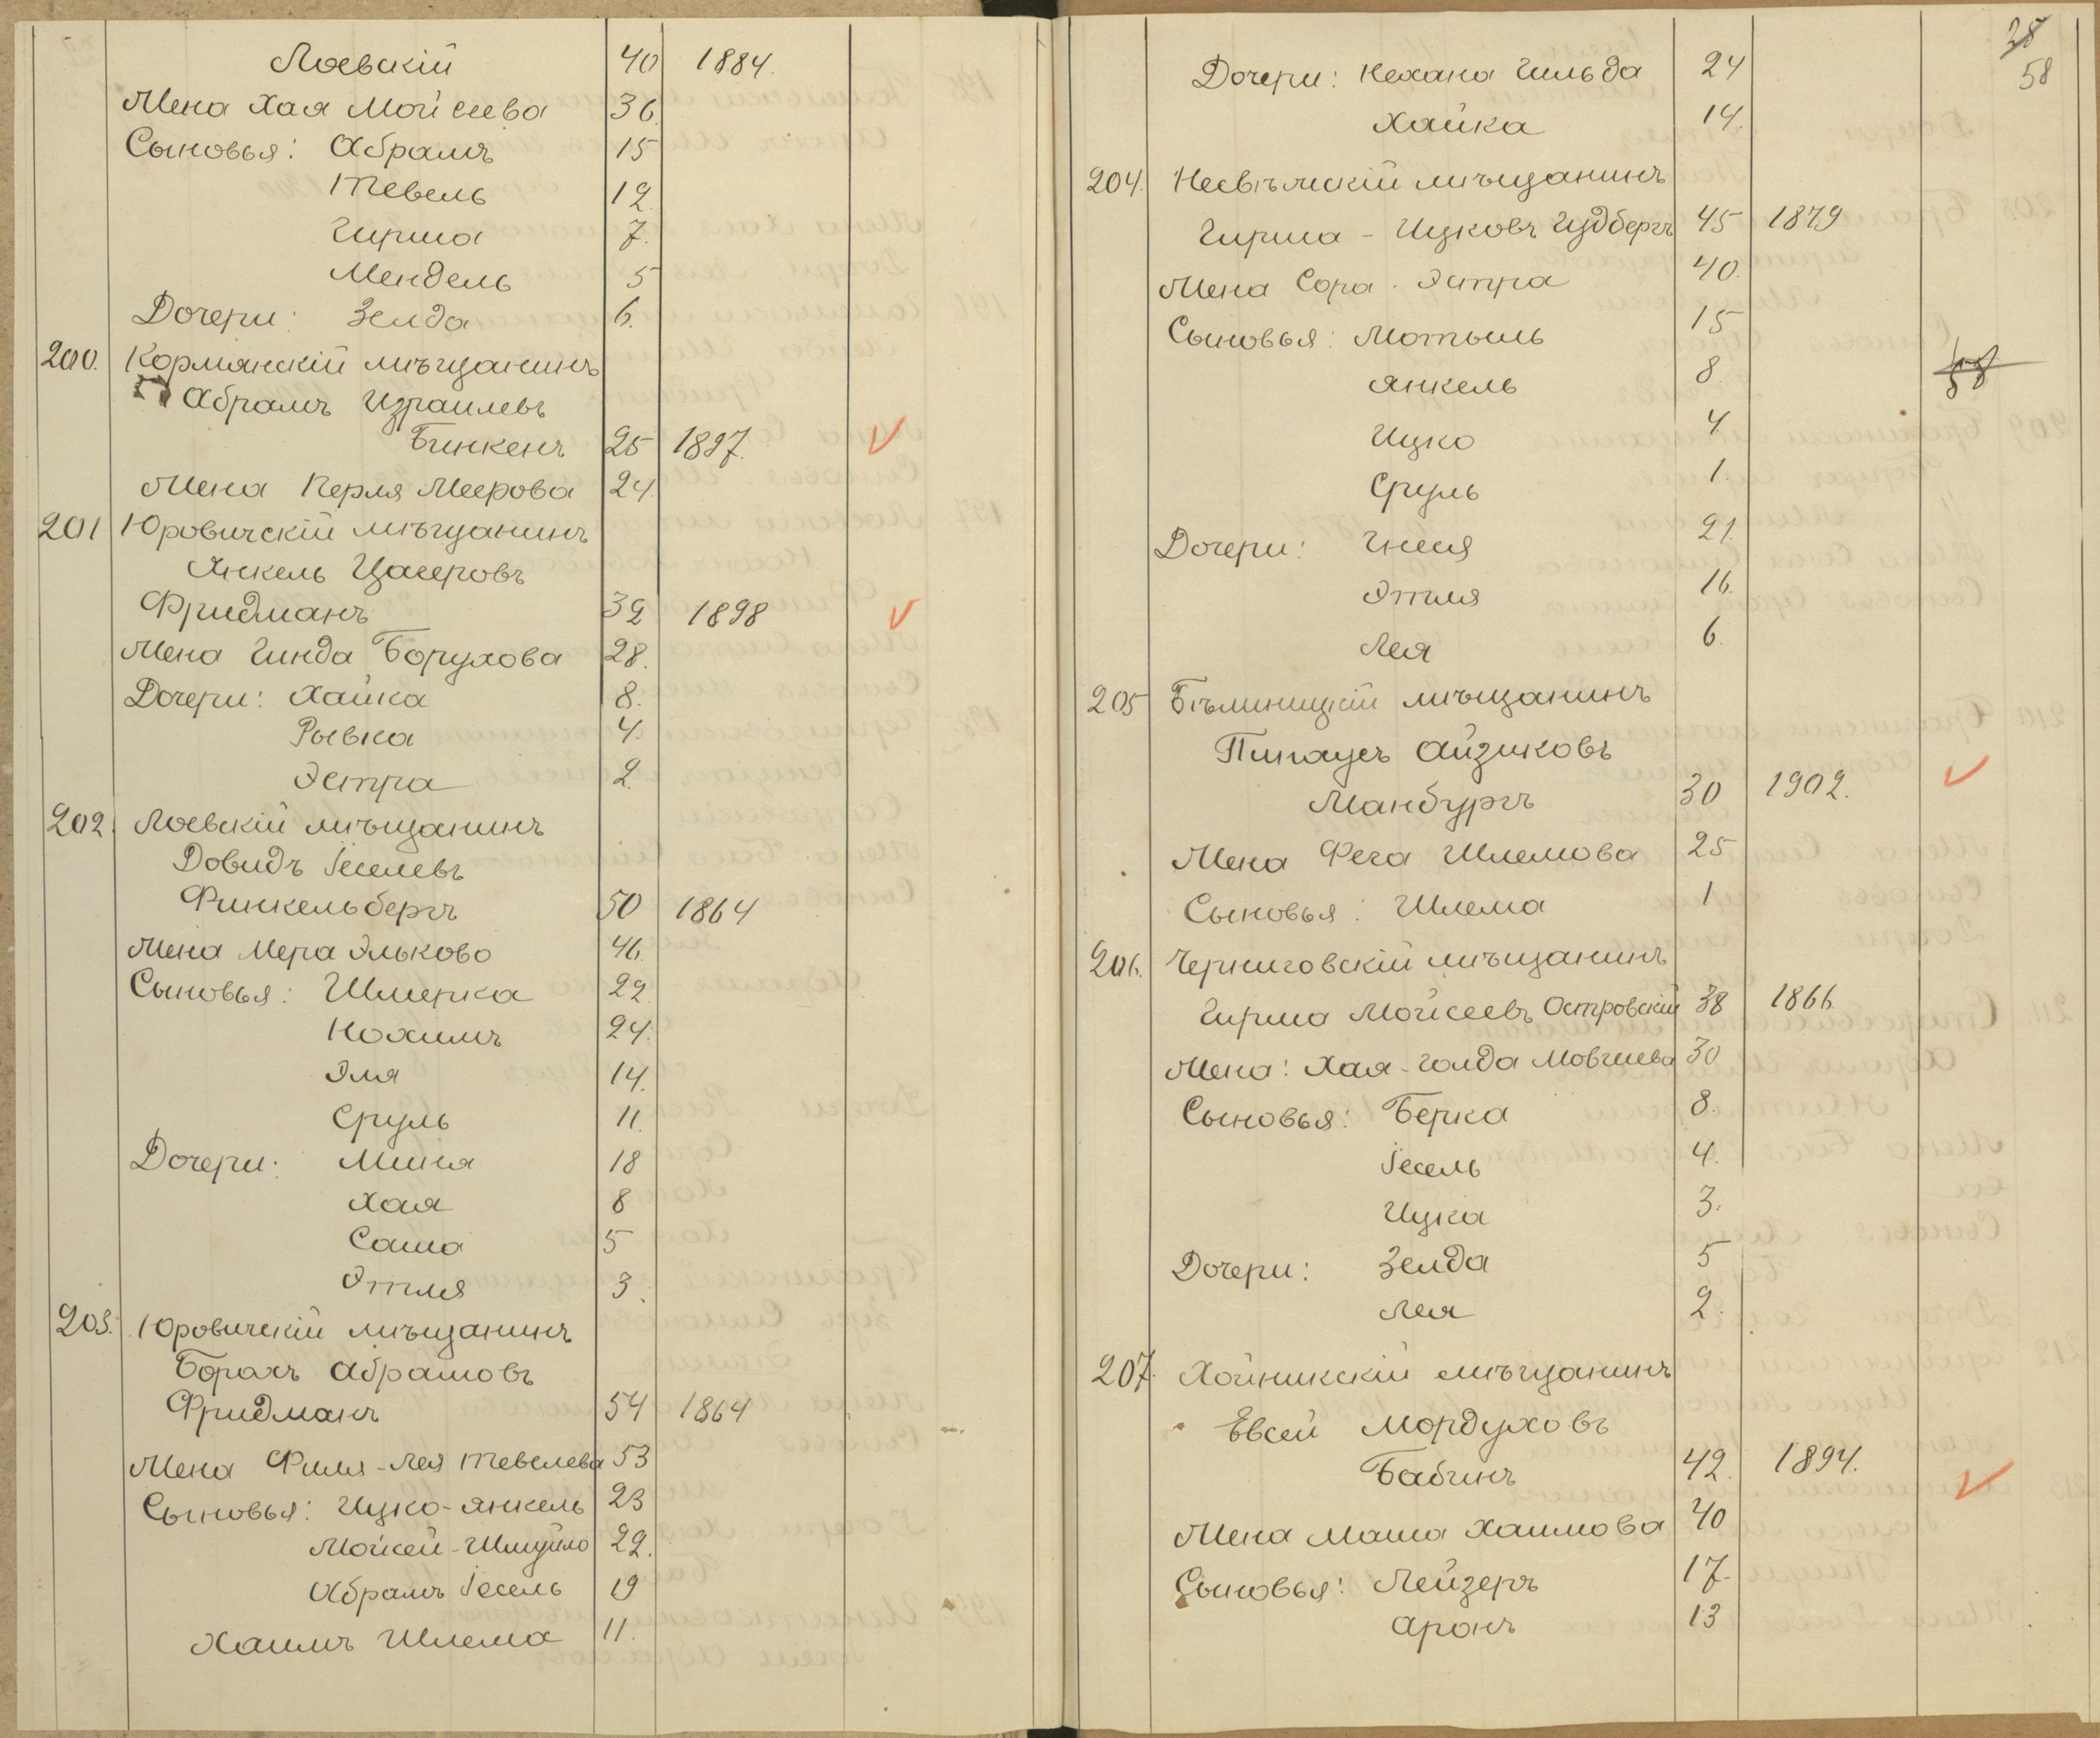 Лоевскій 40 1884.
Жена Хая Мойсеева 36.
Сыновья: Абрамъ 15
Тевель 12
Гирша 7.
Мендель 5
Дочери: Зелда 6.
200. Кормянскій мѣщанинъ
Абрамъ Израилевъ
Бинкенъ 25 1897.
Жена Перля Меерова 24.
201 Юровичскій мѣщанинъ
Янкель Цалеровъ
Фридманъ 32 1898
Жена Гинда Борухова 28.
Дочери: Хайка 8.
Рывка 4.
Эстра 2.
202. Лоевскій мѣщанинъ
Довидъ Іеселевъ
Финкельбергъ 50 1864
Жена Мера Эльково 46.
Сыновья: Шмерка 22
Нохимъ 24.
Эля 14.
Сруль 11.
Дочери: Миня 18
Хая 8
Саша 5
Этля 3.
203. Юровичскій мѣщанинъ
Борахъ Абрамовъ
Фридманъ 54 1864
Жена Филя-Лея Тевелева 53
Сыновья: Ицко-Янкель 23
Мойсей-Шмуйло 22.
Абрамъ Іесель 19
Хаимъ Шлема 11.
28
58
Дочери: Нехана Гильда 24
Хайка 14.
204. Несвѣжскій мѣщанинъ
Гирша-Ицковъ Гудбергъ 45 1879
Жена Сора-Эстра 40.
Сыновья: Мотыль 15
Янкель 8
58
Ицко 4
Сруль 1.
Дочери: Гнеся 21.
Этля 16.
Лея 6.
205 Бѣлиницкій мѣщанинъ
Пинхусъ Айзиковъ
Манбургъ 30 1902.
Жена Фега Шлемова 25
Сыновья: Шлема 1
206. Черниговскій мѣщанинъ
Гирша Мойсеевъ Островскій 38 1866.
Жена: Хая-Голда Мовшева 30
Сыновья: Берка 8.
Іесель 4.
Ицка 3.
Дочери: Зелда 5
Лея 2.
207. Хойникскій мѣщанинъ
Евсей Мордуховъ
Бабинъ 42. 1894.
Жена Маша Хаимова 40
Сыновья: Лейзеръ 17.
Аронъ 13